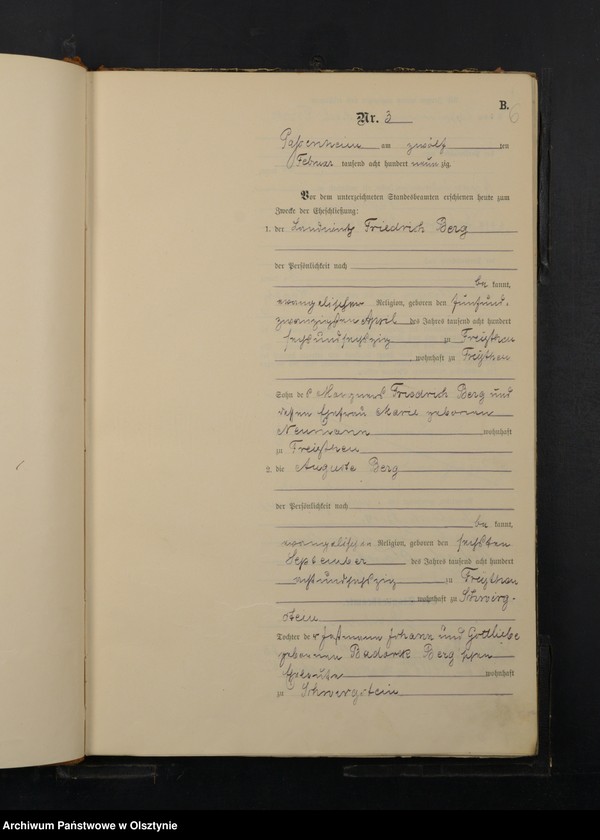 B.
6
Nr. 3
Passenheim am zwölf ten
Februar tausend acht hundert neun zig.
Vor dem unterzeichneten Standesbeamten erschienen heute zum
Zwecke der Eheschließung:
1. der Landwirth Friedrich Berg
der Persönlichkeit nach
be kannt,
evangelischer Religion, geboren den fünfund-
zwanzigsten April des Jahres tausend acht hundert
sechsundsechszig zu
wohnhaft zu
Sohn des Friedrich Berg und
dessen Ehefrau Marie geborenen
Neumann wohnhaft
zu
2. die Auguste Berg
der Persönlichkeit nach
be kannt,
evangelischer Religion, geboren den sechsten
September des Jahres tausend acht hundert
achtundsechszig zu
wohnhaft zu Schwirg-
stein
Tochter der Johann und Gottliebe
geborenen Berg'schen
Eheleute wohnhaft
zu Schwirgstein
Archiwum Państwowe w Olsztynie